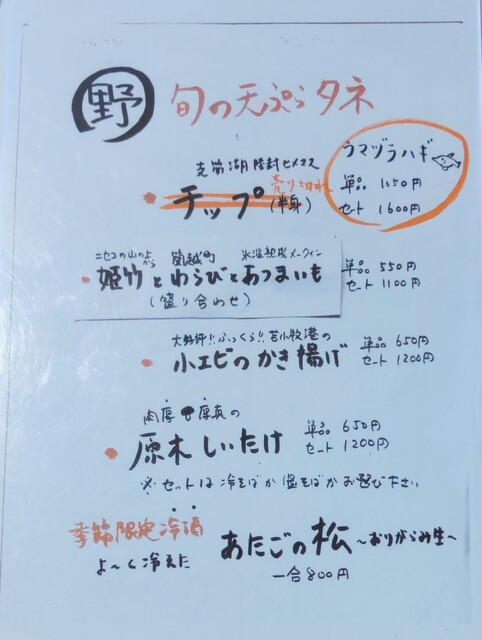 野 旬の天ぷらタネ
ウマヅラハギ
単品 1150円
セット 1600円
支笏湖陸封ヒメマス
売り切れ
チップ(半身)
ニセコの山の上から 蘭越町 氷温熟成メークイン
姫竹とわらびとあつまいも
(盛り合わせ)
単品 550円
セット 1100円
大好評!!ふっくら!!苫小牧港の
小エビのかき揚げ
単品 650円
セット 1200円
肉厚 厚真の
原木しいたけ
単品 650円
セット 1200円
※セットは冷そばか温そばかお選び下さい
季節限定冷酒
よ〜く冷えた
あたごの松 〜おりがらみ生〜
一合800円